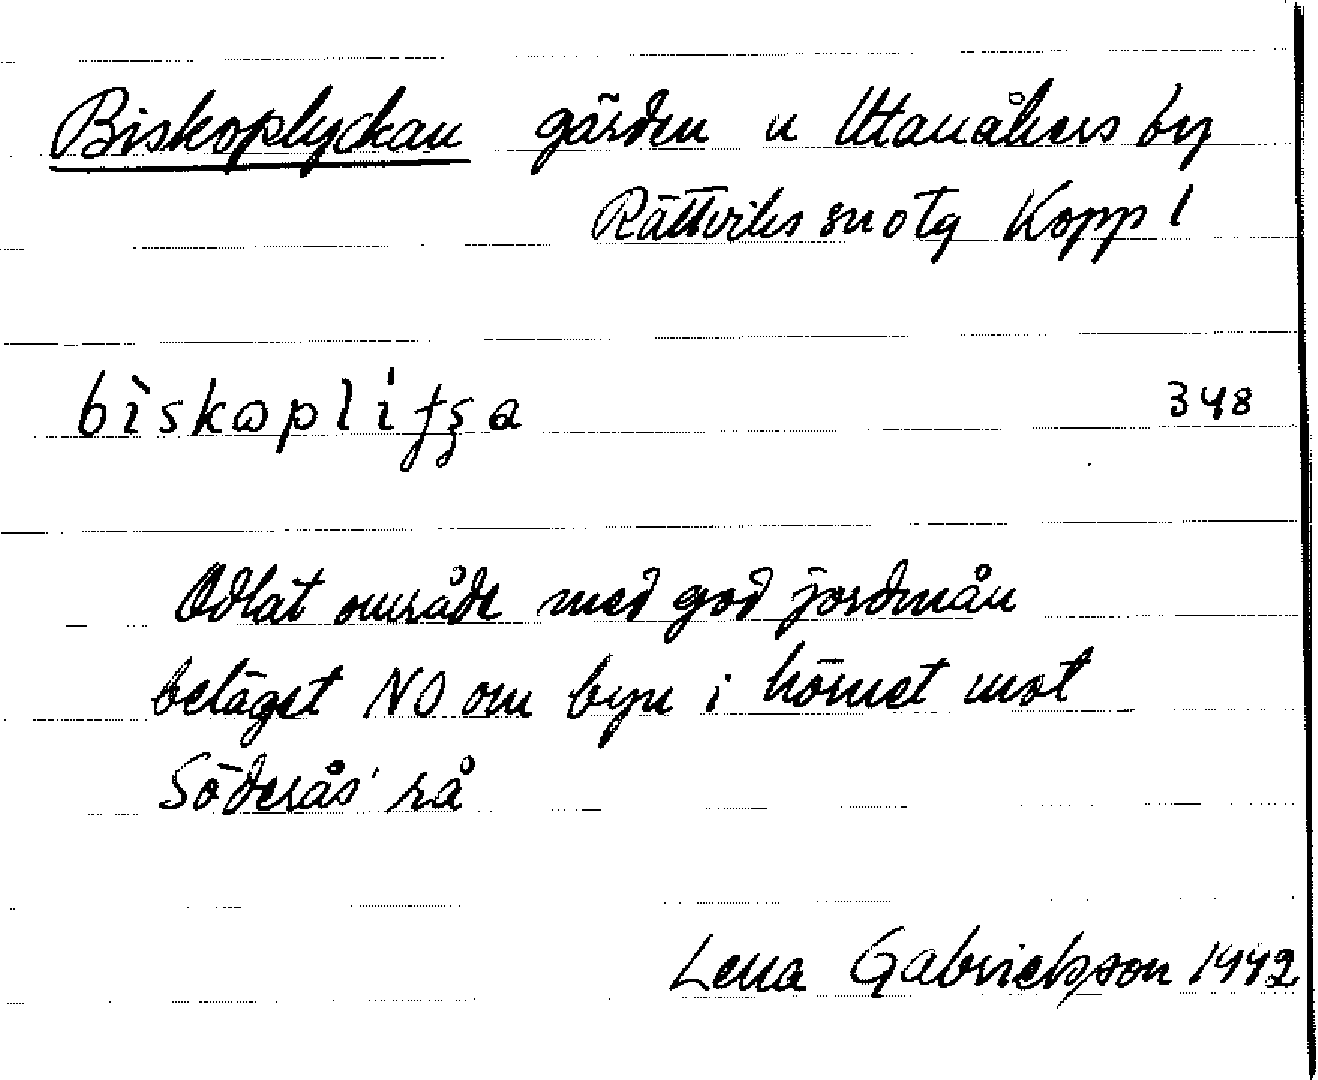 Biskoplyckan gärden u Utanåkers by
Rättviks sn o tg Kopp l
bìskoplífsa 348
Odlat område med god jordmån
beläget NO om byn i hörnet mot
Söderås' rå
Lena Gabrielsson 1942